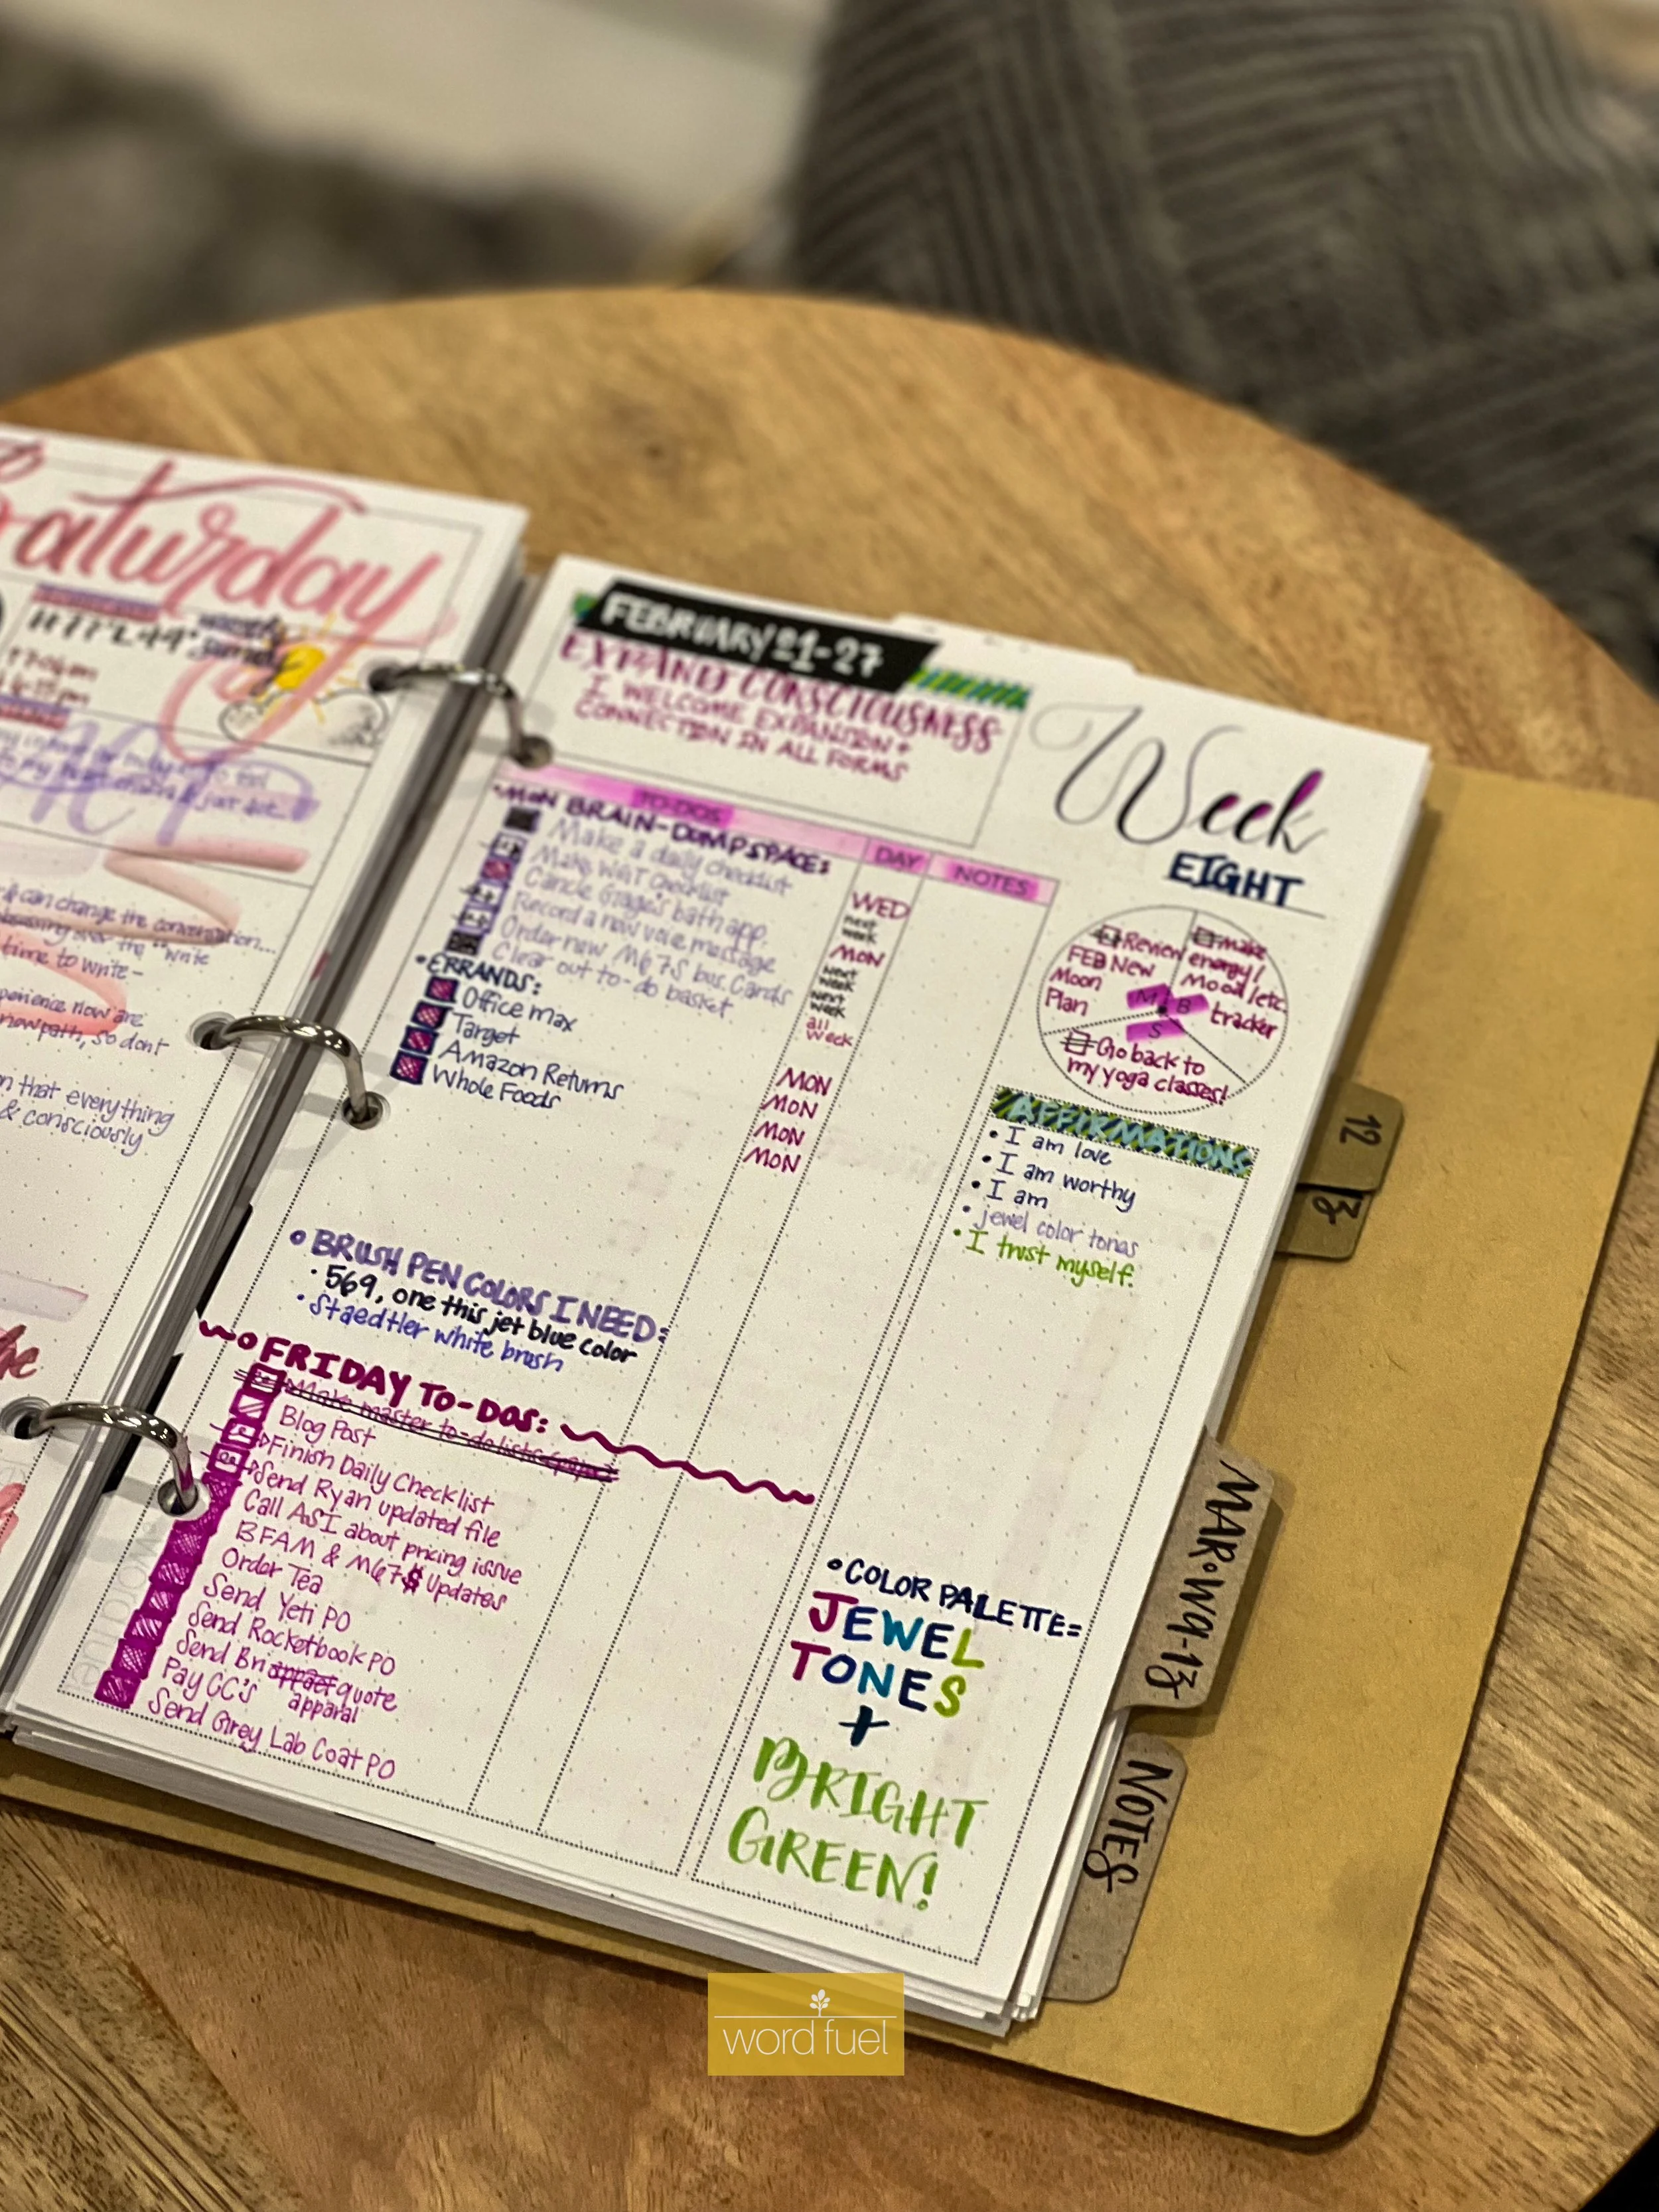 Saturday
& can change the conversation...
time to write-
perience now are
new path, so dont
n that everything
& consciously
FEBRUARY 21-27
EXPAND CONSCIOUSNESS
I WELCOME EXPANSION +
CONNECTION IN ALL FORMS
Week
EIGHT
TO-DOS
DAY
NOTES
•MON BRAIN-DUMP SPACE:
Make a daily checklist WED
Make WGT checklist next week
Cancle Grage's bath app. MON
Record a new voie message next week
Order new M67S bus. Cards next week
Clear out to-do basket all week
•ERRANDS:
Office max MON
Target MON
Amazon Returns MON
Whole Foods MON
Review
FEB New
Moon
Plan
make
energy/
Mood/etc.
tracker
M
B
S
Go back to
my yoga classes!
AFFIRMATIONS
• I am love
• I am worthy
• I am
• jewel color tones
• I trust myself.
• BRUSH PEN COLORS I NEED:
• 569, one this jet blue color
• Staedtler white brush
FRIDAY TO-DOS:
Make master to-do lists
Blog Post
Finish Daily Checklist
Send Ryan updated file
Call ASI about pricing issue
BFAM & M67$ Updates
Order Tea
Send Yeti PO
Send Rocketbook PO
Send Bri quote
apparal
Pay CC's
Send Grey Lab Coat PO
• COLOR PALETTE=
JEWEL
TONES
+
BRIGHT
GREEN!
12
13
MAR•W9-13
NOTES
word fuel